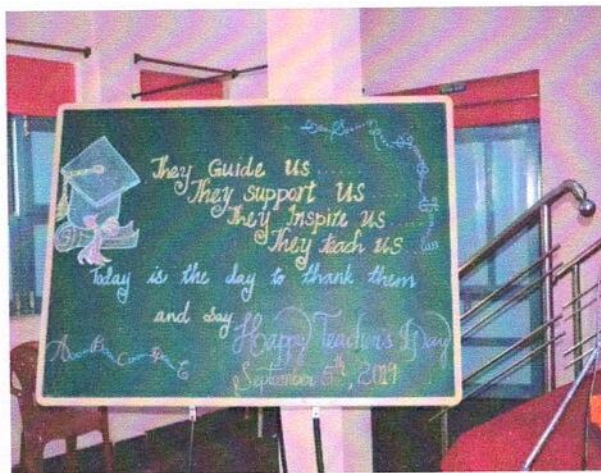 They Guide Us.....
They support Us.....
They Inspire us...
They teach us...
Today is the day to thank them
and say Happy Teacher's Day
September 5th, 2019
A B C D E